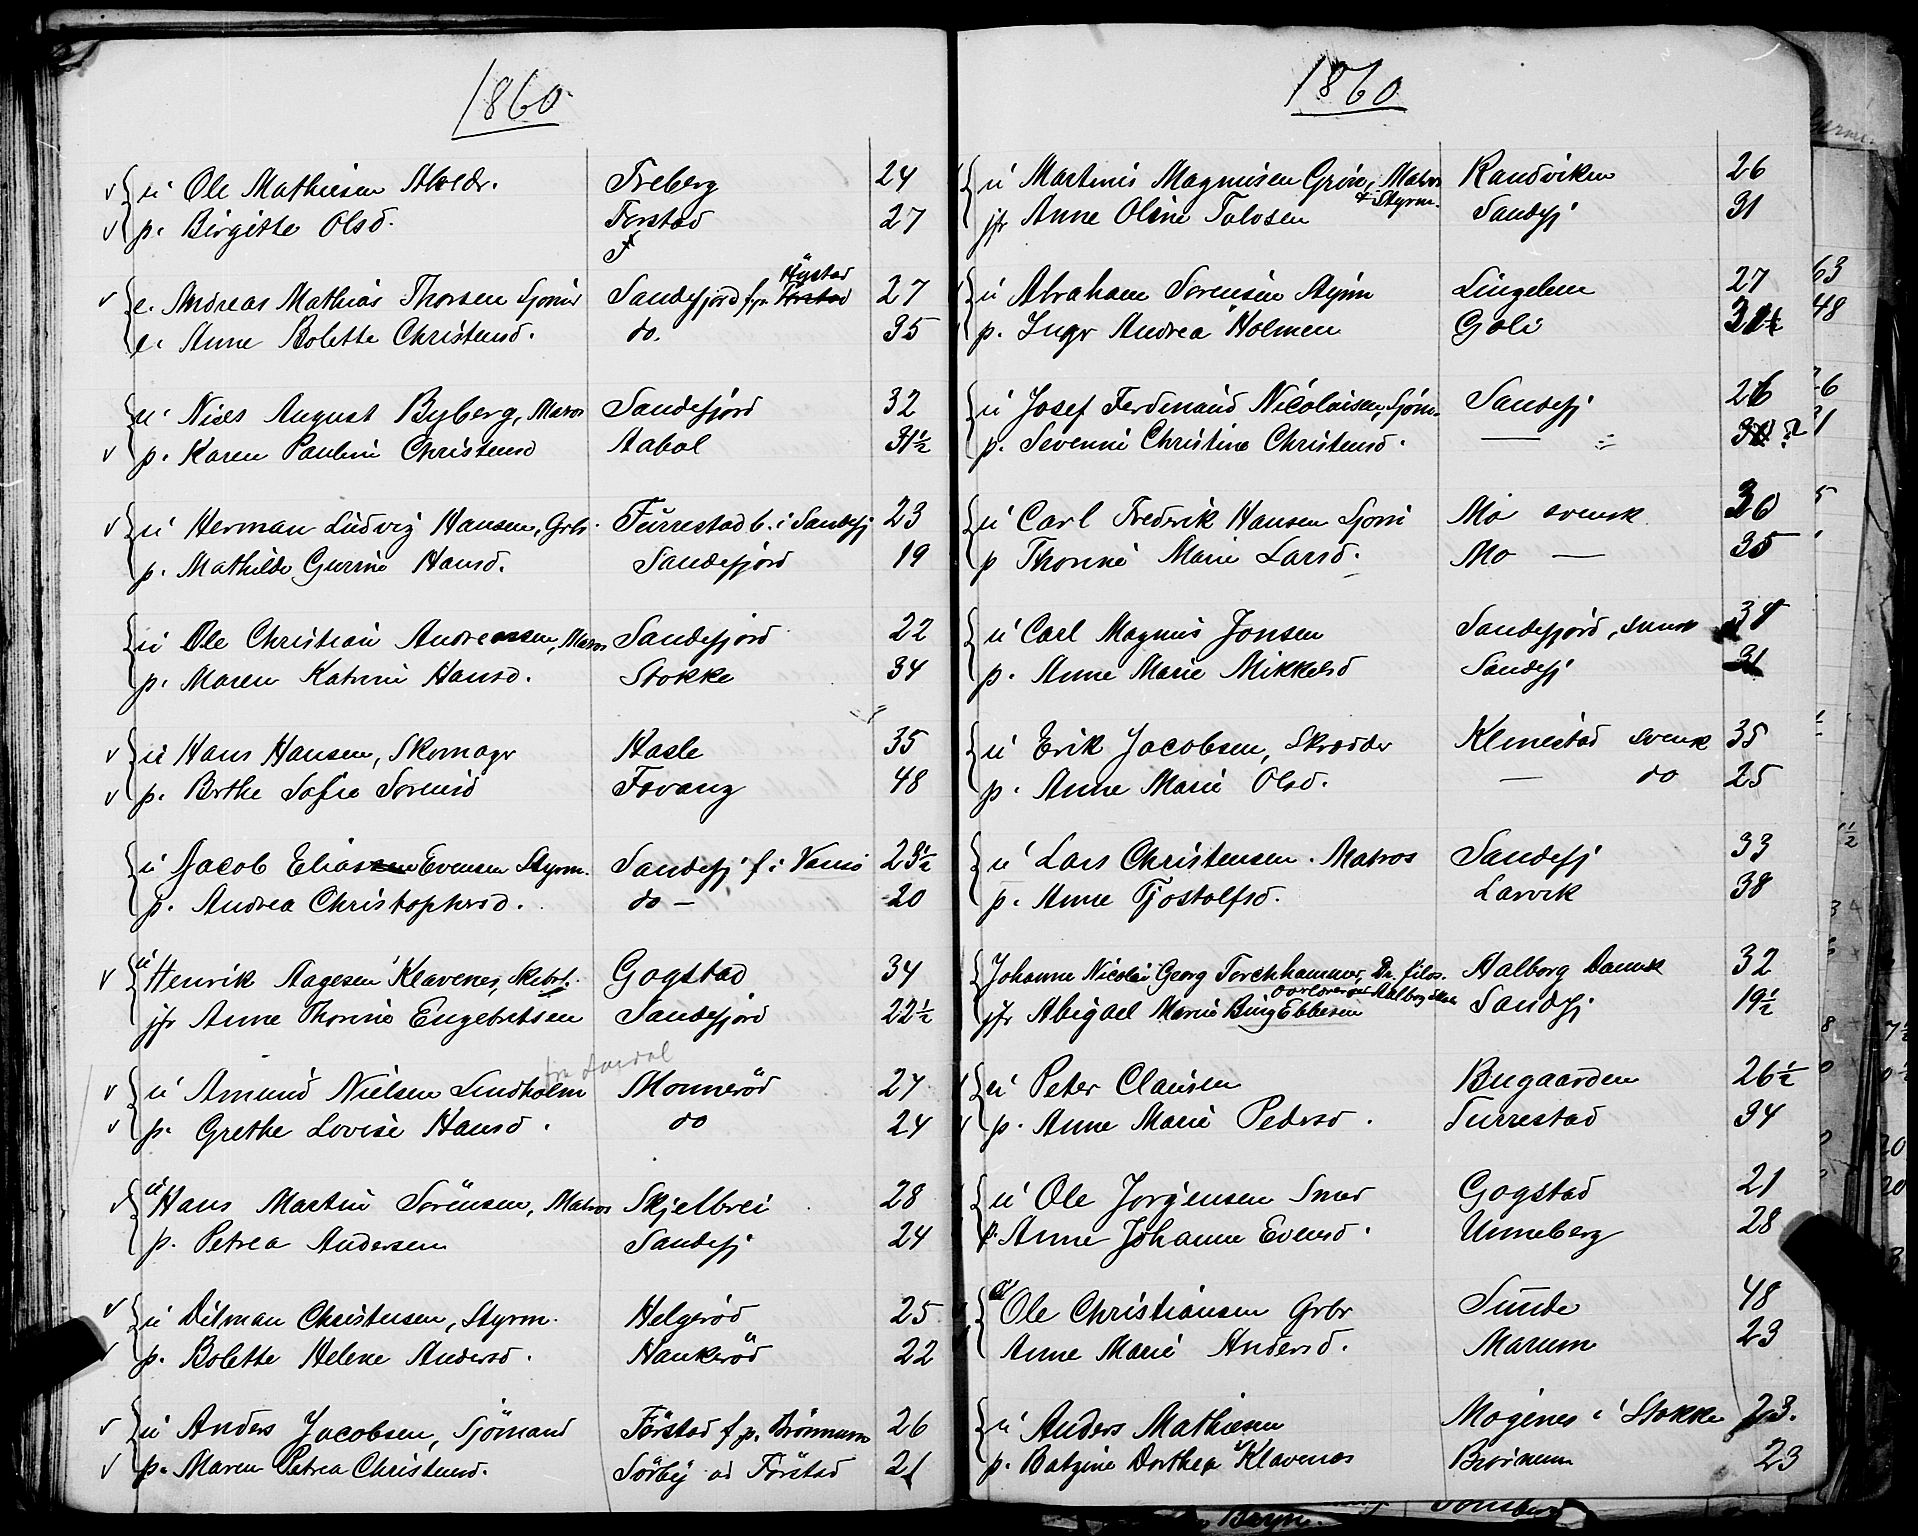 1860
u Ole Mathiesen Treberg 24
p. Birgitte Olsd. Forstad 27
Hystad
e. Andreas Mathias Thorsen Sjøm Sandefjord f. p. Forstad 27
e. Anne Bolette Christensd. do. 35
u Niels August Byberg, Matros Sandefjord 32
p. Karen Pauline Christensd Aabol 31½
u Herman Ludvig Hansen, Grbr. Furrestad b. i Sandefj 23
p. Mathilde Gurine Hansd. Sandefjord 19
u Ole Christian Andreassen, Matros Sandefjord 22
p. Maren Katrine Hansd. Stokke 34
u Hans Hansen, Skomagr Hasle 35
p. Brthe Sofie Sorensd Fevang 48
u Jacob Eliassen Evensen Styrm. Sandefj f. i 23½
p. Andrea Christophersd. do — 20
u Henrik Aagesen Klavenes, Skibsf. Gogstad 34
jfr Anne Thorine Engebretsen Sandefjord 22½
fra Lardal
u Amund Nielsen Lindholm Monnerød 27
p. Grethe Lovise Hansd. do 24
u Hans Martin Sørensen, Matros Skjelbrei 28
p. Petrea Andersen Sandefj 24
u Ditman Christensen, Styrm. Helgerød 25
p. Bolette Helene Andersd. Haukerød 22
u Anders Jacobsen, Sjømand Førstad f. p. Brønnum 26
p. Maren Petrea Christensd. Sørby ad Førstad 21
1860
u Martinis Magnusen Grøn, Matros Randviken 26
& Styrm.
jfr Anne Oline Tolvsen Sandefj 31
u Abraham Sorensen Styrm Lingelem 27
p. Ingr Andrea Holmen Goli
u Josef Ferdinand Nicolaisen, Sjøm Sandefj 26
p. Severine Christine Christensd. — " —
u Carl Fredrik Hansen Sjøm Mo svensk 30
p Thorine Marie Larsd. Mo — 35
u Carl Magnus Jonsen Sandefjord, svensk
p. Anne Marie Mikkelsd Sandefj 31
u Erik Jacobsen, Skrædder Klinestad svensk 35
p. Anne Marie Olsd. — do 25
u Lars Christensen. Matros Sandefj 33
p. Anne Tjostolfsd. Larvik 38
Johanne Nicolai Georg Forchhammer, Dr. filos. Aalborg Danmk 32
overlærer ved Aalborg skole
jfr Abigael Marie Bing Ebbesen Sandfj 19½
u Peter Clausen Bugaarden 26½
p. Anne Marie Pedersd. Furrestad 34
u Ole Jorgensen Smed Gogstad 21
p. Anne Johanne Evensd. Unneberg 28
u Ole Christiansen Grbr Sunde 48
Anne Marie Andersd. Marum 23
u Anders Mathiesen Mogenes i Stokke 23.
p. Batzine Dorthea Klavenes Brønnum 23